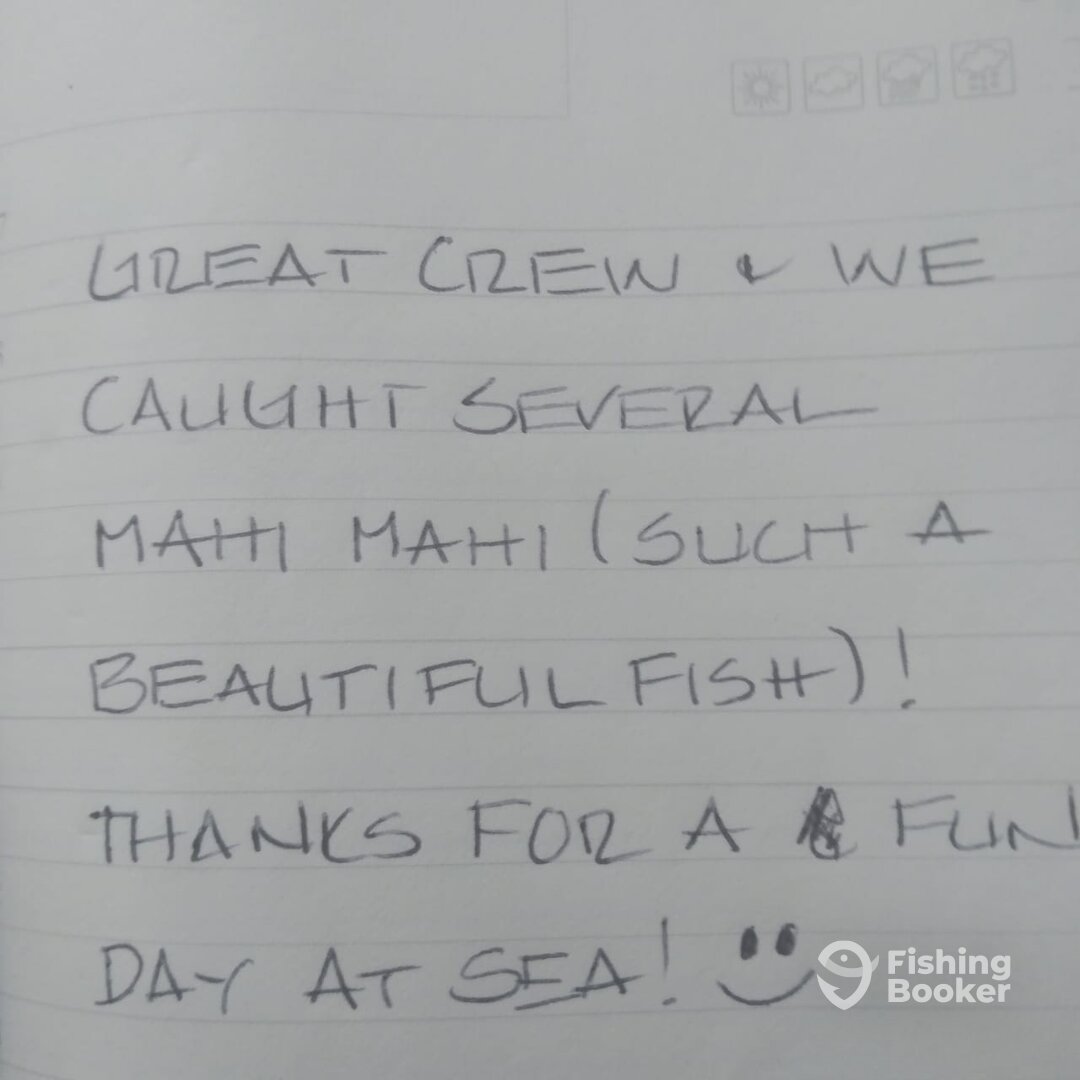 GREAT CREW & WE
CAUGHT SEVERAL
MAHI MAHI (SUCH A
BEAUTIFUL FISH)!
THANKS FOR A FUN
DAY AT SEA!
Fishing
Booker